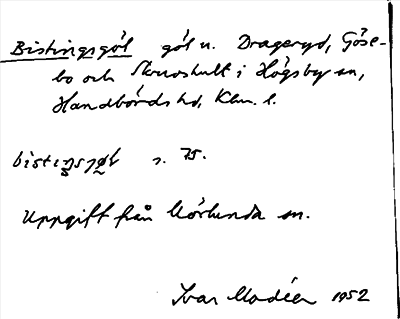 Bistingsgöl göl n. Drageryd, Göse-
bo och Skruvshult i Högsby sn,
Handbörds hd, Klm. l.
bistiŋsjøl s. 75.
Uppgift från Mörlunda sn.
Ivar Modéer 1952